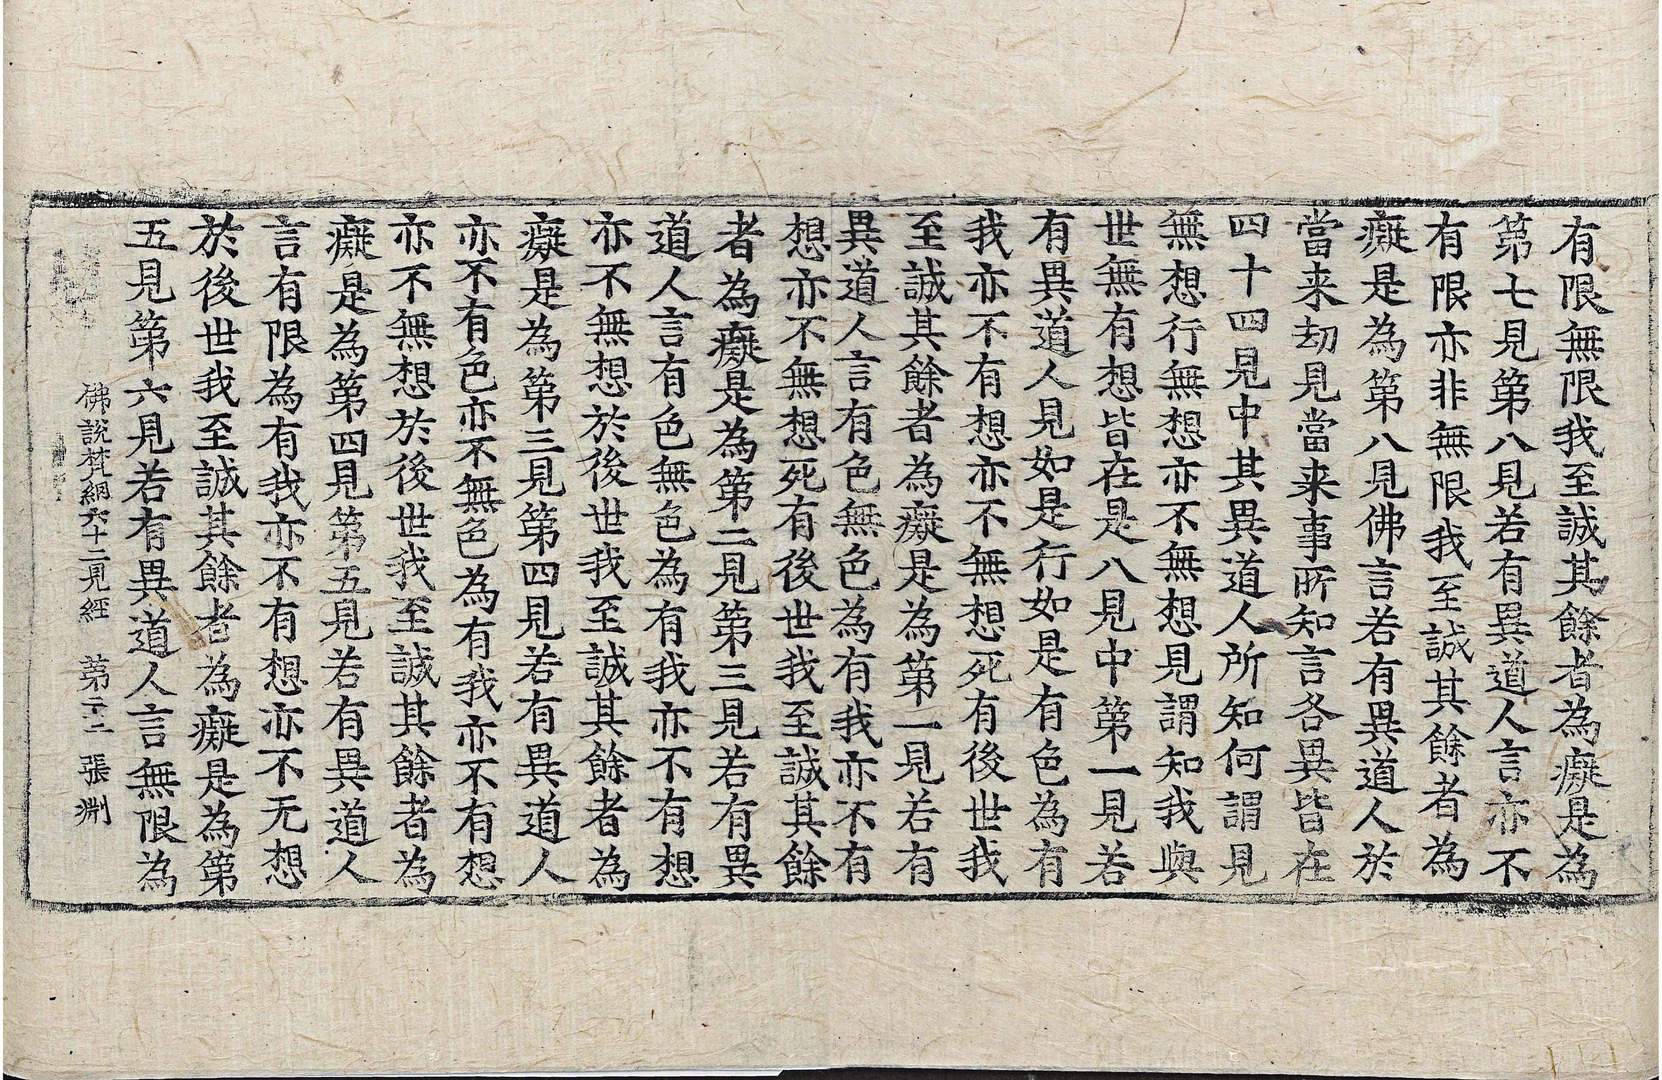 有限無限我至誠其餘者為癡是為
第七見第八見若有異道人言亦不
有限亦非無限我至誠其餘者為
癡是為第八見佛言若有異道人於
當来劫見當来事所知言各異皆在
四十四見中其異道人所知何謂見
無想行無想亦不無想見謂知我與
世無有想皆在是八見中第一見若
有異道人見如是行如是有色為有
我亦不有想亦不無想死有後世我
至誠其餘者為癡是為第一見若有
異道人言有色無色為有我亦不有
想亦不無想死有後世我至誠其餘
者為癡是為第二見第三見若有異
道人言有色無色為有我亦不有想
亦不無想於後世我至誠其餘者為
癡是為第三見第四見若有異道人
亦不有色亦不無色為有我亦不有想
亦不無想於後世我至誠其餘者為
癡是為第四見第五見若有異道人
言有限為有我亦不有想亦不无想
於後世我至誠其餘者為癡是為第
五見第六見若有異道人言無限為
佛說梵網六十二見經 第 張